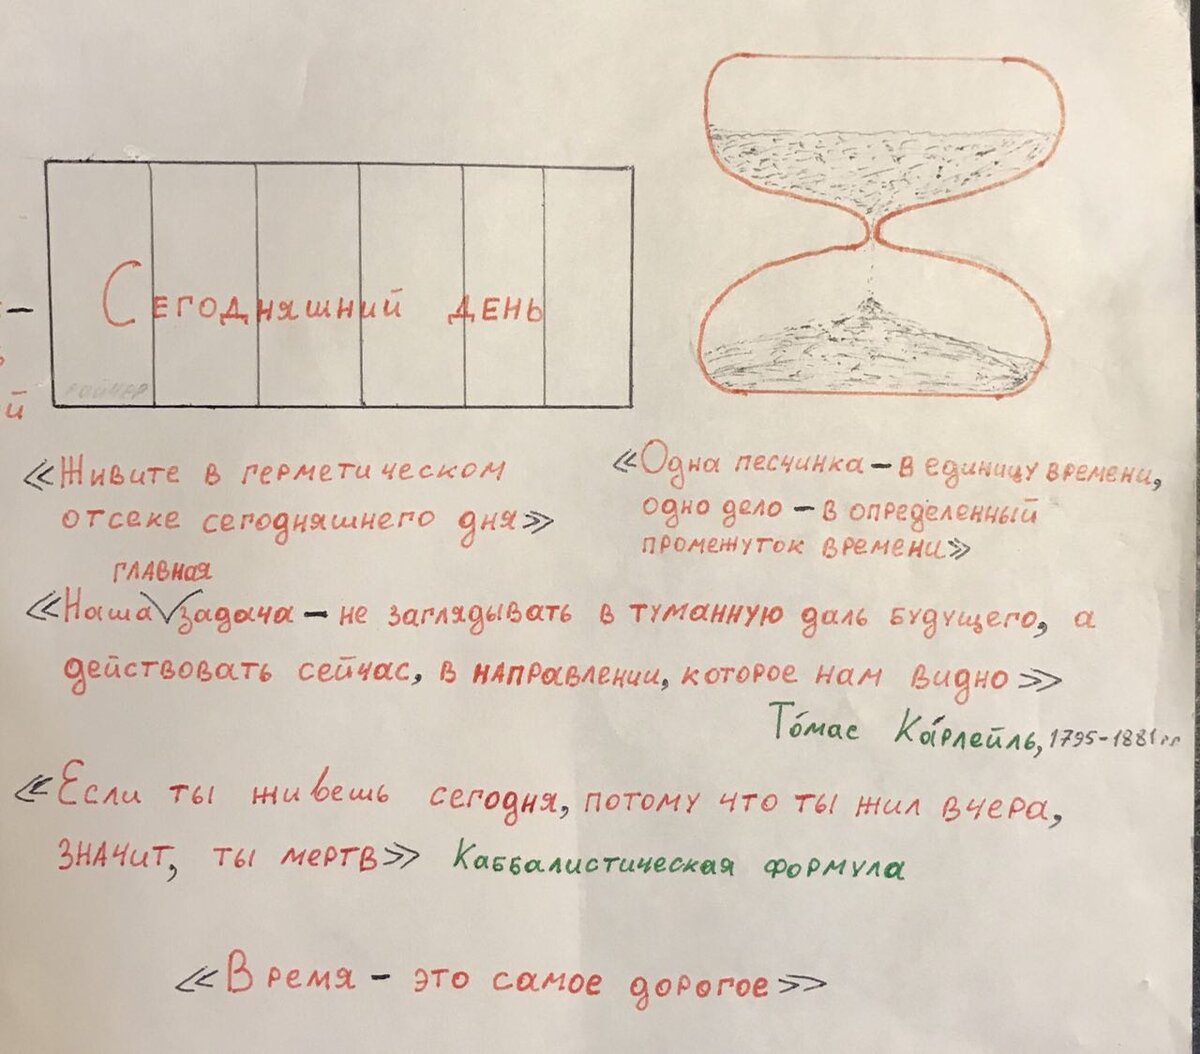 Сегодняшний день
й
«Живите в герметическом
отсеке сегодняшнего дня»
«Одна песчинка – в единицу времени,
одно дело – в определенный
промежуток времени»
главная
«Наша задача – не заглядывать в туманную даль будущего, а
действовать сейчас, в направлении, которое нам видно»
То́мас Ка́рлейль, 1795-1881гг
«Если ты живешь сегодня, потому что ты жил вчера,
значит, ты мертв» Каббалистическая формула
«Время – это самое дорогое»